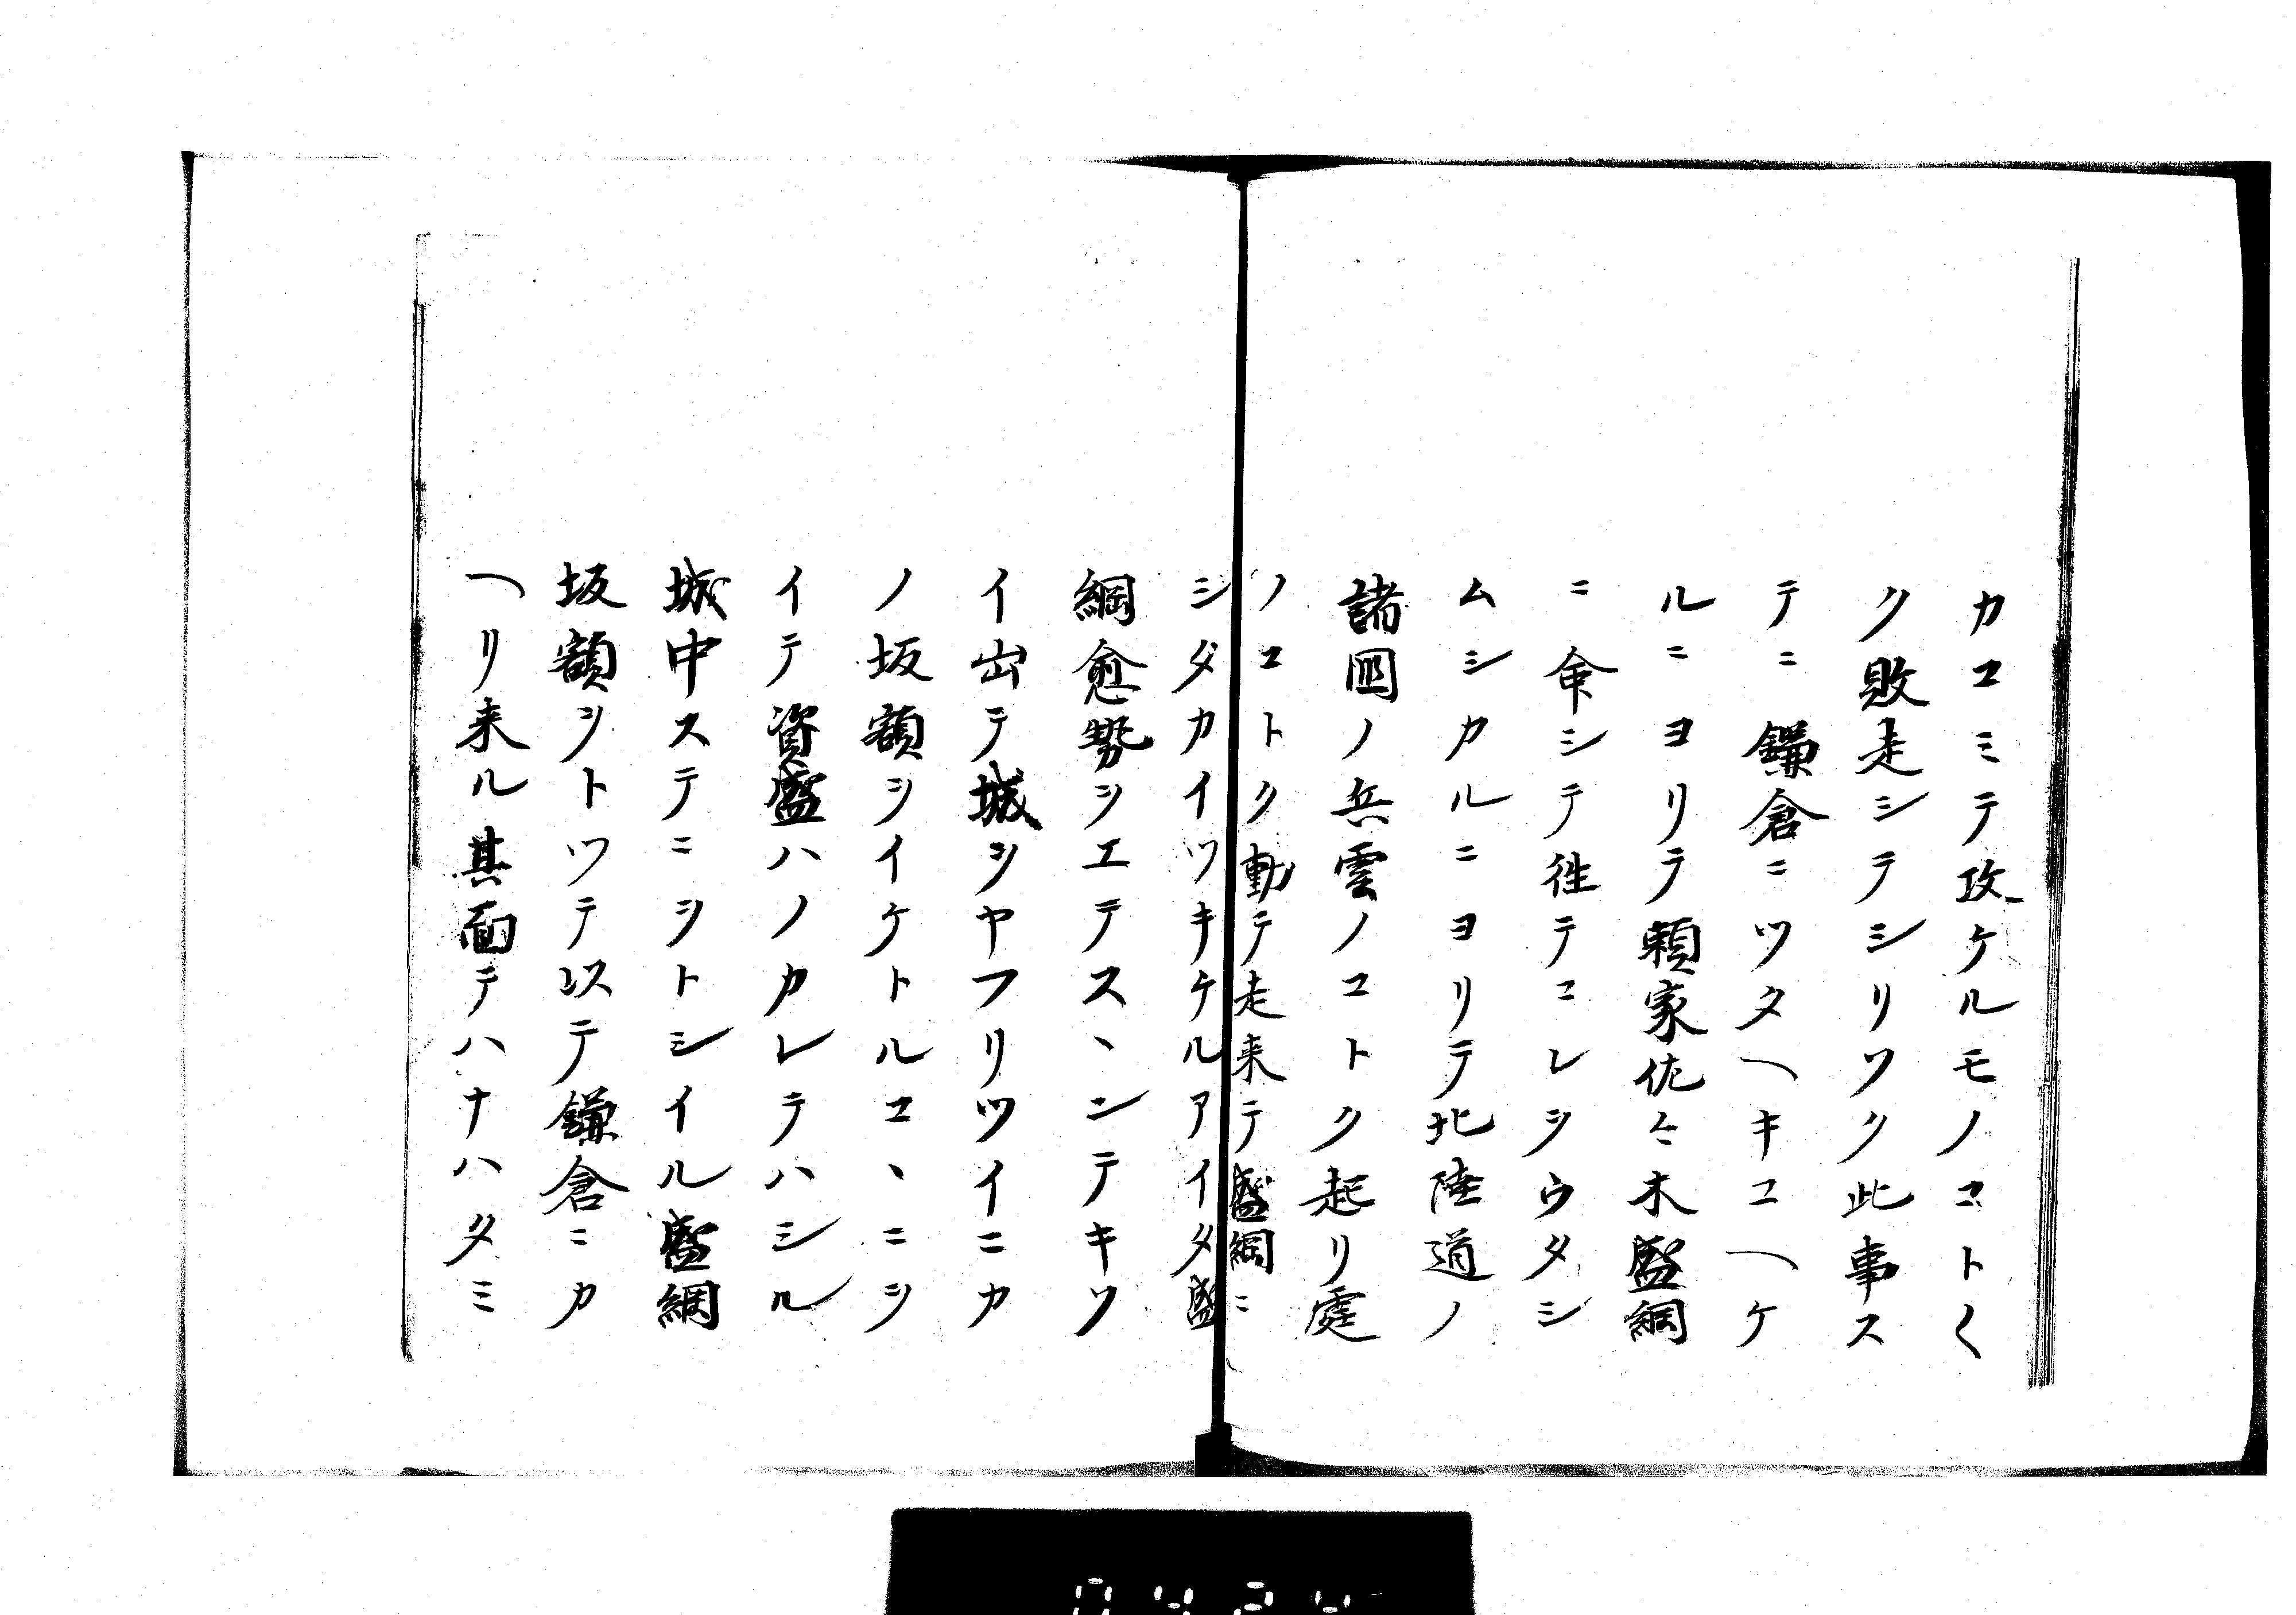 カコミテ攻ケルモノコト〱
ク敗走シテシリソク此事ス
テニ鎌倉ニツタヘキコヘケ
ルニヨリテ頼家佐々木盛綱
ニ命シテ徃テコレヲウタシ
ムシカルニヨリテ北陸道ノ
諸國ノ兵雲ノコトク起リ霆
ノコトク動テ走来テ盛綱ニ
シタカイツキケルアイタ盛
綱愈勢ヲエテスヽンテキソ
イ出テ城ヲヤフリツイニカ
ノ坂額ヲイケトルコヽニヲ
イテ資盛ハノカレテハシル
城中ステニヲトシイル盛綱
坂額ヲトツテ以テ鎌倉ニカ
ヘリ来ル其面テハナハタミ